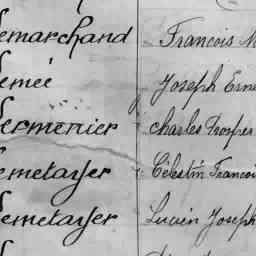 emarchand François M
emée Joseph Erne
ermenier Charles Prosper
emetayer Célestin Françoi
emetayer Lucien Joseph